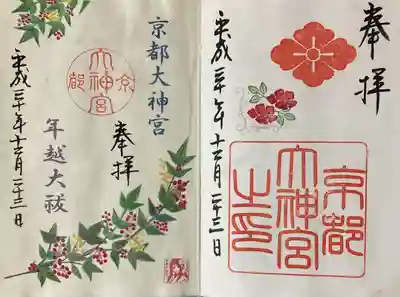 奉拝
京都
大神宮
之印
平成三十年十二月二十三日
京都大神宮
京
大神宮
都
奉拝
年越大祓
平成三十年十二月二十三日